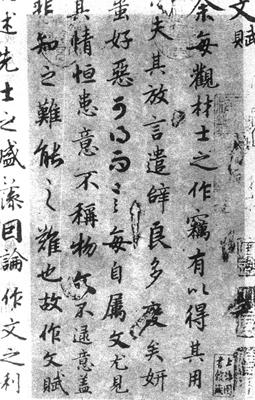 文賦
余每觀材士之作竊有以得其用
夫其放言遣辭良多變矣妍
蚩好惡可得而言每自屬文尤見
其情恒患意不稱物文不逮意蓋
非知之難能之難也故作文賦
述先士之盛藻因論作文之利
上海圖書館藏